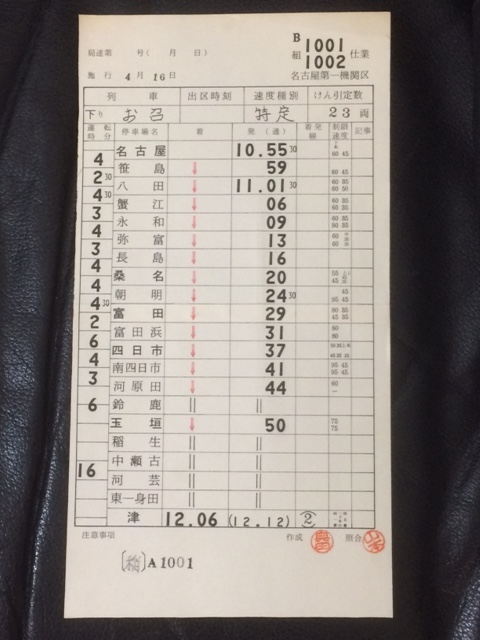 B
組 1001 仕業
1002
局達第 号(月 日)
施行 4月16日
名古屋第一機関区
列車 出区時刻 速度種別 けん引定数
下り お召 特定 23両
運転時分 停車場名 着 発(通) 着発線 制限速度 記事
名古屋 10.55 30 60 45
4
笹島 ↓ 59 60 45
2 30
八田 ↓ 11.01 30
4 30
蟹江 ↓ 06
3
永和 ↓ 09
4
弥富 ↓ 13 60
3
長島 ↓ 16
4
桑名 ↓ 20
4
朝明 ↓ 24 30 45
4 30
富田 ↓ 29
2
富田浜 ↓ 31 80 80
6
四日市 ↓ 37
4
南四日市 ↓ 41 95 45
3
河原田 ↓ 44 60
鈴鹿 || ||
6
玉垣 ↓ 50 75 75
稲生 || ||
中瀬古 || ||
16
河芸 || ||
東一身田 || ||
津 12.06 (12.12) 2
注意事項 作成 照合
A1001